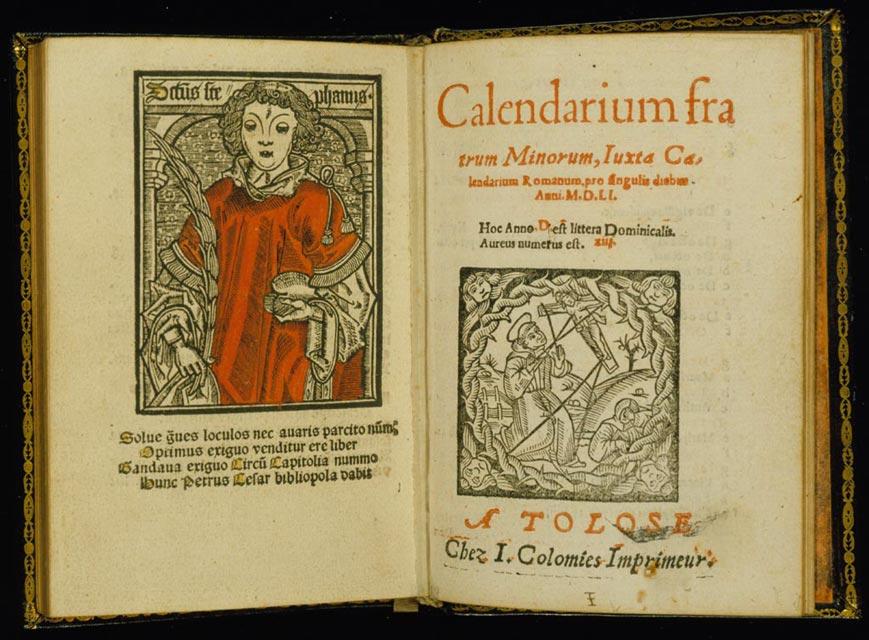 Sctūs ste phanus.
Solue q̄ues loculos nec avaris parcito nūm̄
Optimus exiguo venditur ere liber
Gandaua exiguo Circū Capitolia nummo
Hunc Petrus Cesar bibliopola dabit
Calendarium fra
trum Minorum, Iuxta Ca-
lendarium Romanum, pro singulis diebus
Anni. M.D.LI.
Hoc Anno D, est littera Dominicalis.
Aureus numerus est. xiij.
A TOLOSE
Chez I. Colomies Imprimeur.